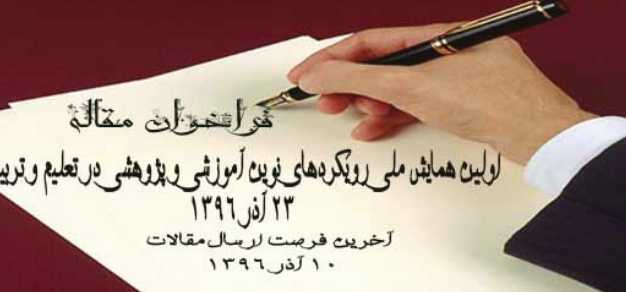 فراخوان مقاله
اولین همایش ملی رویکردهای نوین آموزشی و پژوهشی در تعلیم و تربی
۲۳ آذر ۱۳۹۶
آخرین فرصت ارسال مقالات
۱۰ آذر ۱۳۹۶